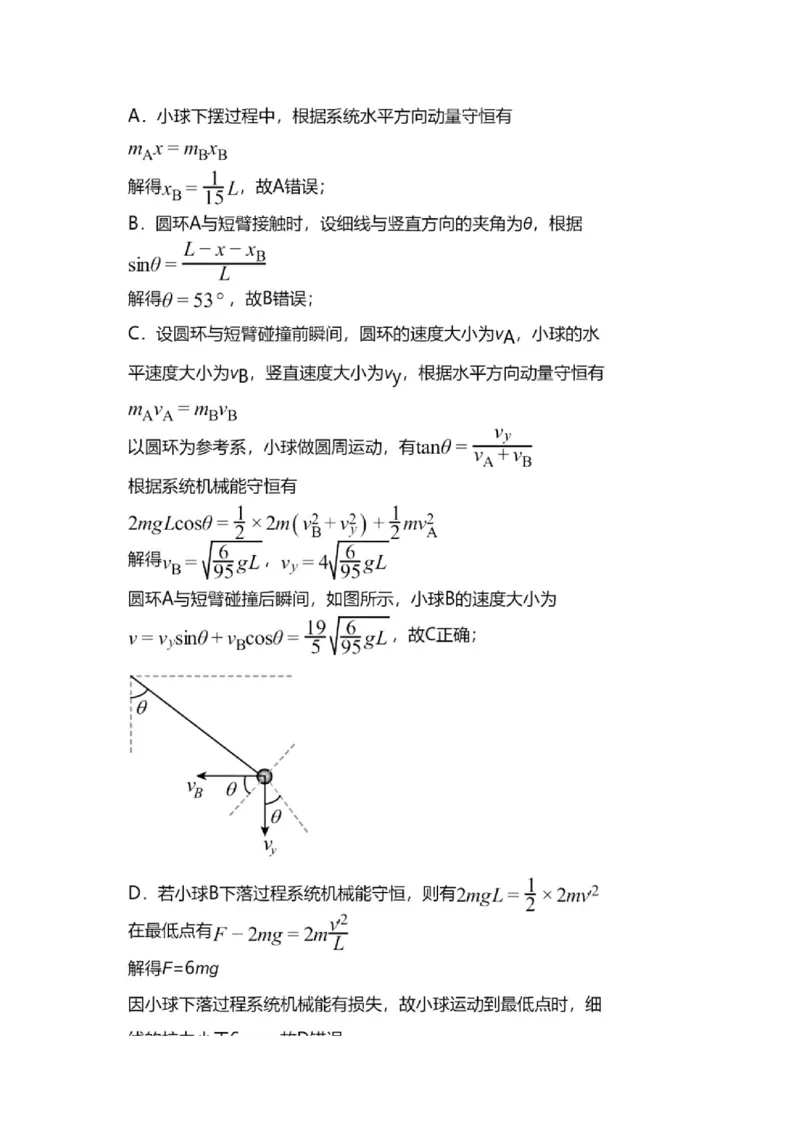 A．小球下摆过程中，根据系统水平方向动量守恒有
m_A x = m_B x_B
解得x_B = 1/15 L，故A错误；
B．圆环A与短臂接触时，设细线与竖直方向的夹角为θ，根据
sinθ = (L − x − x_B)/L
解得θ = 53°，故B错误；
C．设圆环与短臂碰撞前瞬间，圆环的速度大小为v_A，小球的水
平速度大小为v_B，竖直速度大小为v_y，根据水平方向动量守恒有
m_A v_A = m_B v_B
以圆环为参考系，小球做圆周运动，有tanθ = v_y/(v_A + v_B)
根据系统机械能守恒有
2mgLcosθ = 1/2 × 2m(v_B² + v_y²) + 1/2 mv_A²
解得v_B = √(6/95 gL)，v_y = 4√(6/95 gL)
圆环A与短臂碰撞后瞬间，如图所示，小球B的速度大小为
v = v_y sinθ + v_B cosθ = 19/5 √(6/95 gL)，故C正确；
θ
v_B θ
θ
v_y
D．若小球B下落过程系统机械能守恒，则有2mgL = 1/2 × 2mv′²
在最低点有F − 2mg = 2m v′²/L
解得F=6mg
因小球下落过程系统机械能有损失，故小球运动到最低点时，细